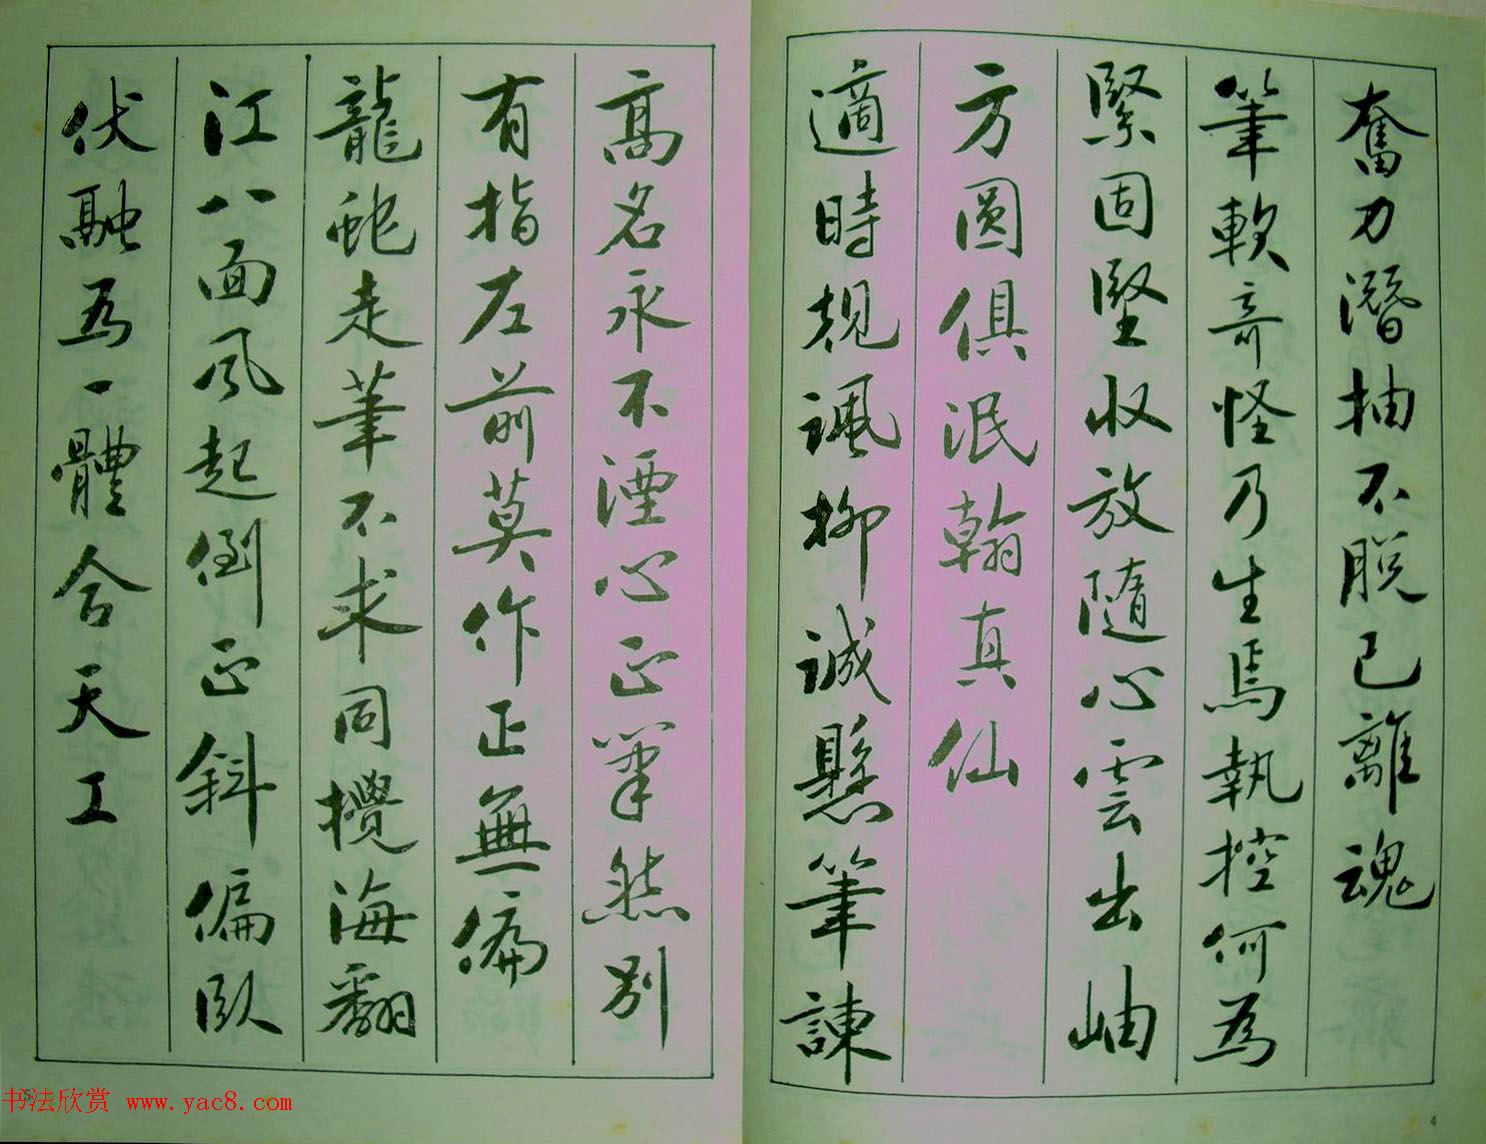 奮力潛抽不脫已離魂
筆軟奇怪乃生焉執控何為
緊固堅收放隨心雲出岫
方圓俱泯翰真仙
適時規諷柳誠懸筆諫
高名永不湮心正筆然別
有指左前莫作正無偏
龍蛇走筆不求同攪海翻
江八面風起倒正斜偏臥
伏融為一體合天工
书法欣赏 www.yac8.com
4